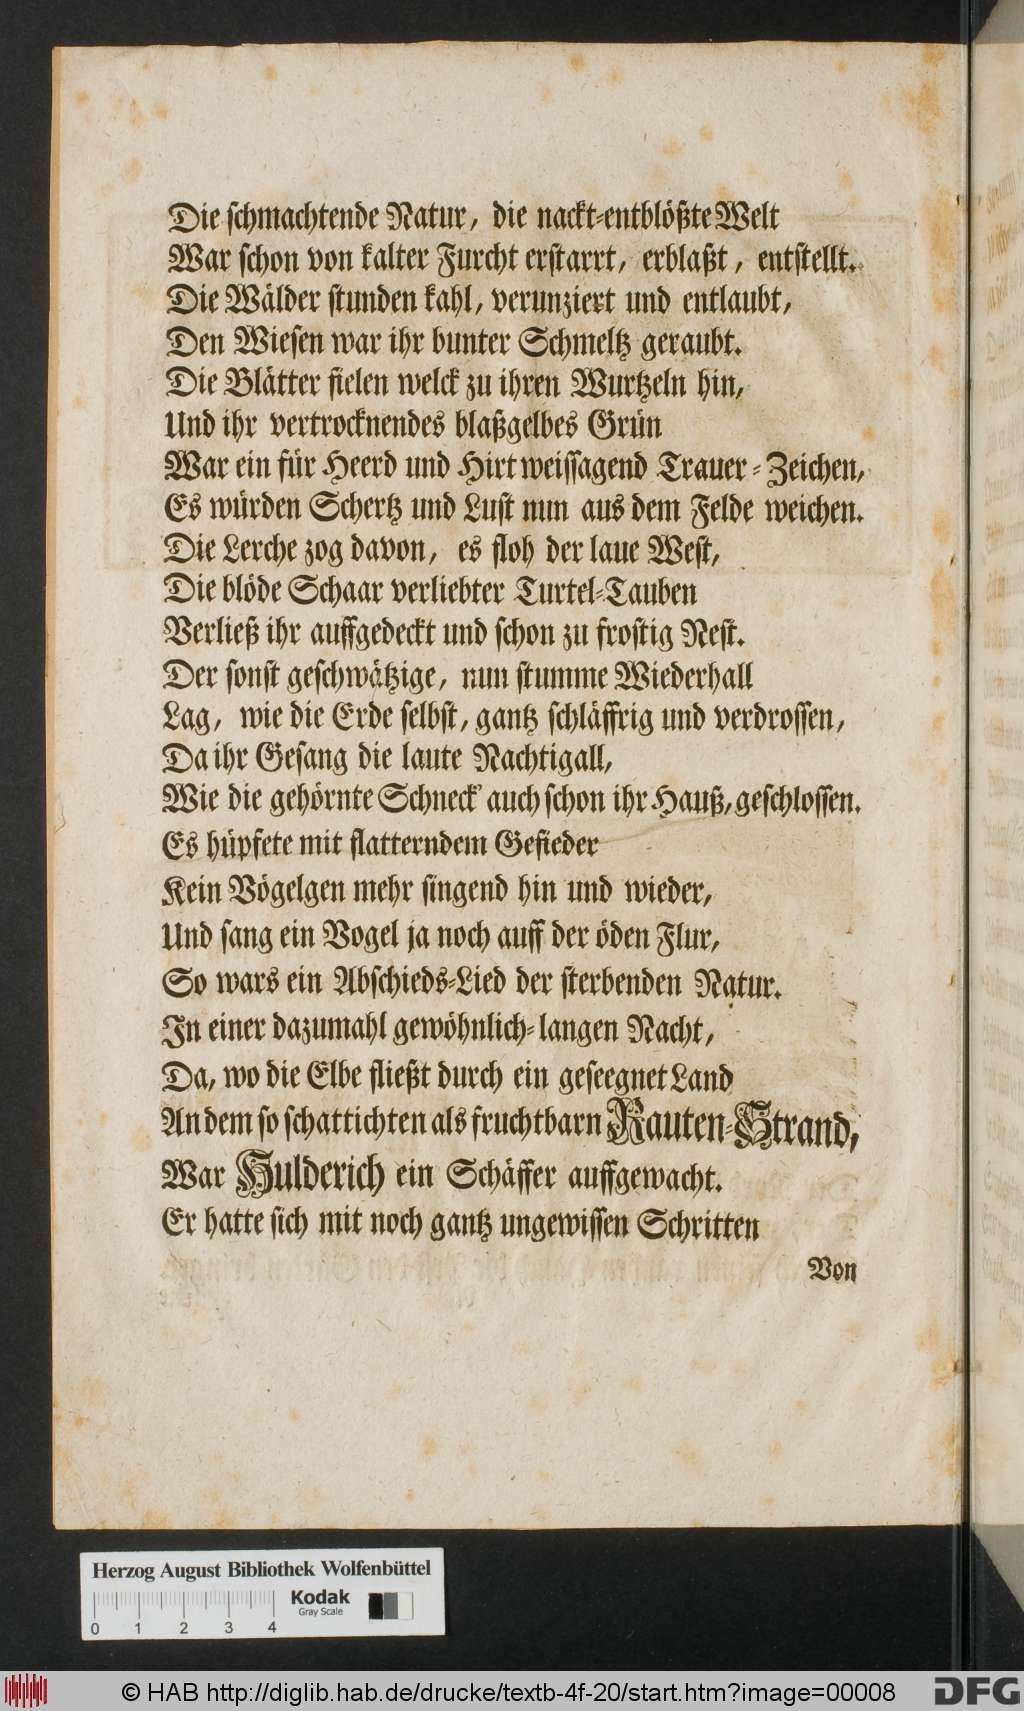 Die schmachtende Natur, die nackt-entblößte Welt
War schon von kalter Furcht erstarrt, erblaßt, entstellt.
Die Wälder stunden kahl, verunziert und entlaubt,
Den Wiesen war ihr bunter Schmeltz geraubt.
Die Blätter fielen welck zu ihren Wurtzeln hin,
Und ihr vertrocknendes blaßgelbes Grün
War ein für Heerd und Hirt weissagend Trauer-Zeichen,
Es würden Schertz und Lust nun aus dem Felde weichen.
Die Lerche zog davon, es floh der laue West,
Die blöde Schaar verliebter Turtel-Tauben
Verließ ihr auffgedeckt und schon zu frostig Nest.
Der sonst geschwätzige, nun stumme Wiederhall
Lag, wie die Erde selbst, gantz schläffrig und verdrossen,
Da ihr Gesang die laute Nachtigall,
Wie die gehörnte Schneck' auch schon ihr Hauß, geschlossen.
Es hüpfete mit flatterndem Gefieder
Kein Vögelgen mehr singend hin und wieder,
Und sang ein Vogel ja noch auff der öden Flur,
So wars ein Abschieds-Lied der sterbenden Natur.
In einer dazumahl gewöhnlich-langen Nacht,
Da, wo die Elbe fließt durch ein geseegnet Land
An dem so schattichten als fruchtbarn Rauten-Strand,
War Hulderich ein Schäffer auffgewacht.
Er hatte sich mit noch gantz ungewissen Schritten
Von
Herzog August Bibliothek Wolfenbüttel
Kodak
Gray Scale
0 1 2 3 4
© HAB http://diglib.hab.de/drucke/textb-4f-20/start.htm?image=00008
DFG